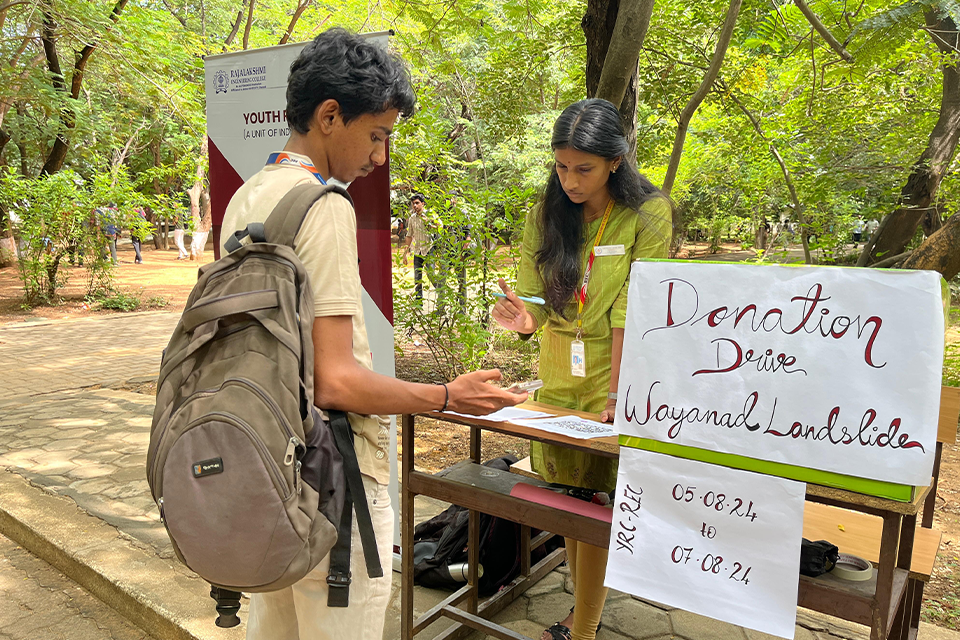 RAJALAKSHMI
ENGINEERING COLLEGE
YOUTH R
(A UNIT OF IND
Donation
Drive
Wayanad Landslide
YRC-REC
05.08.24
to
07.08.24